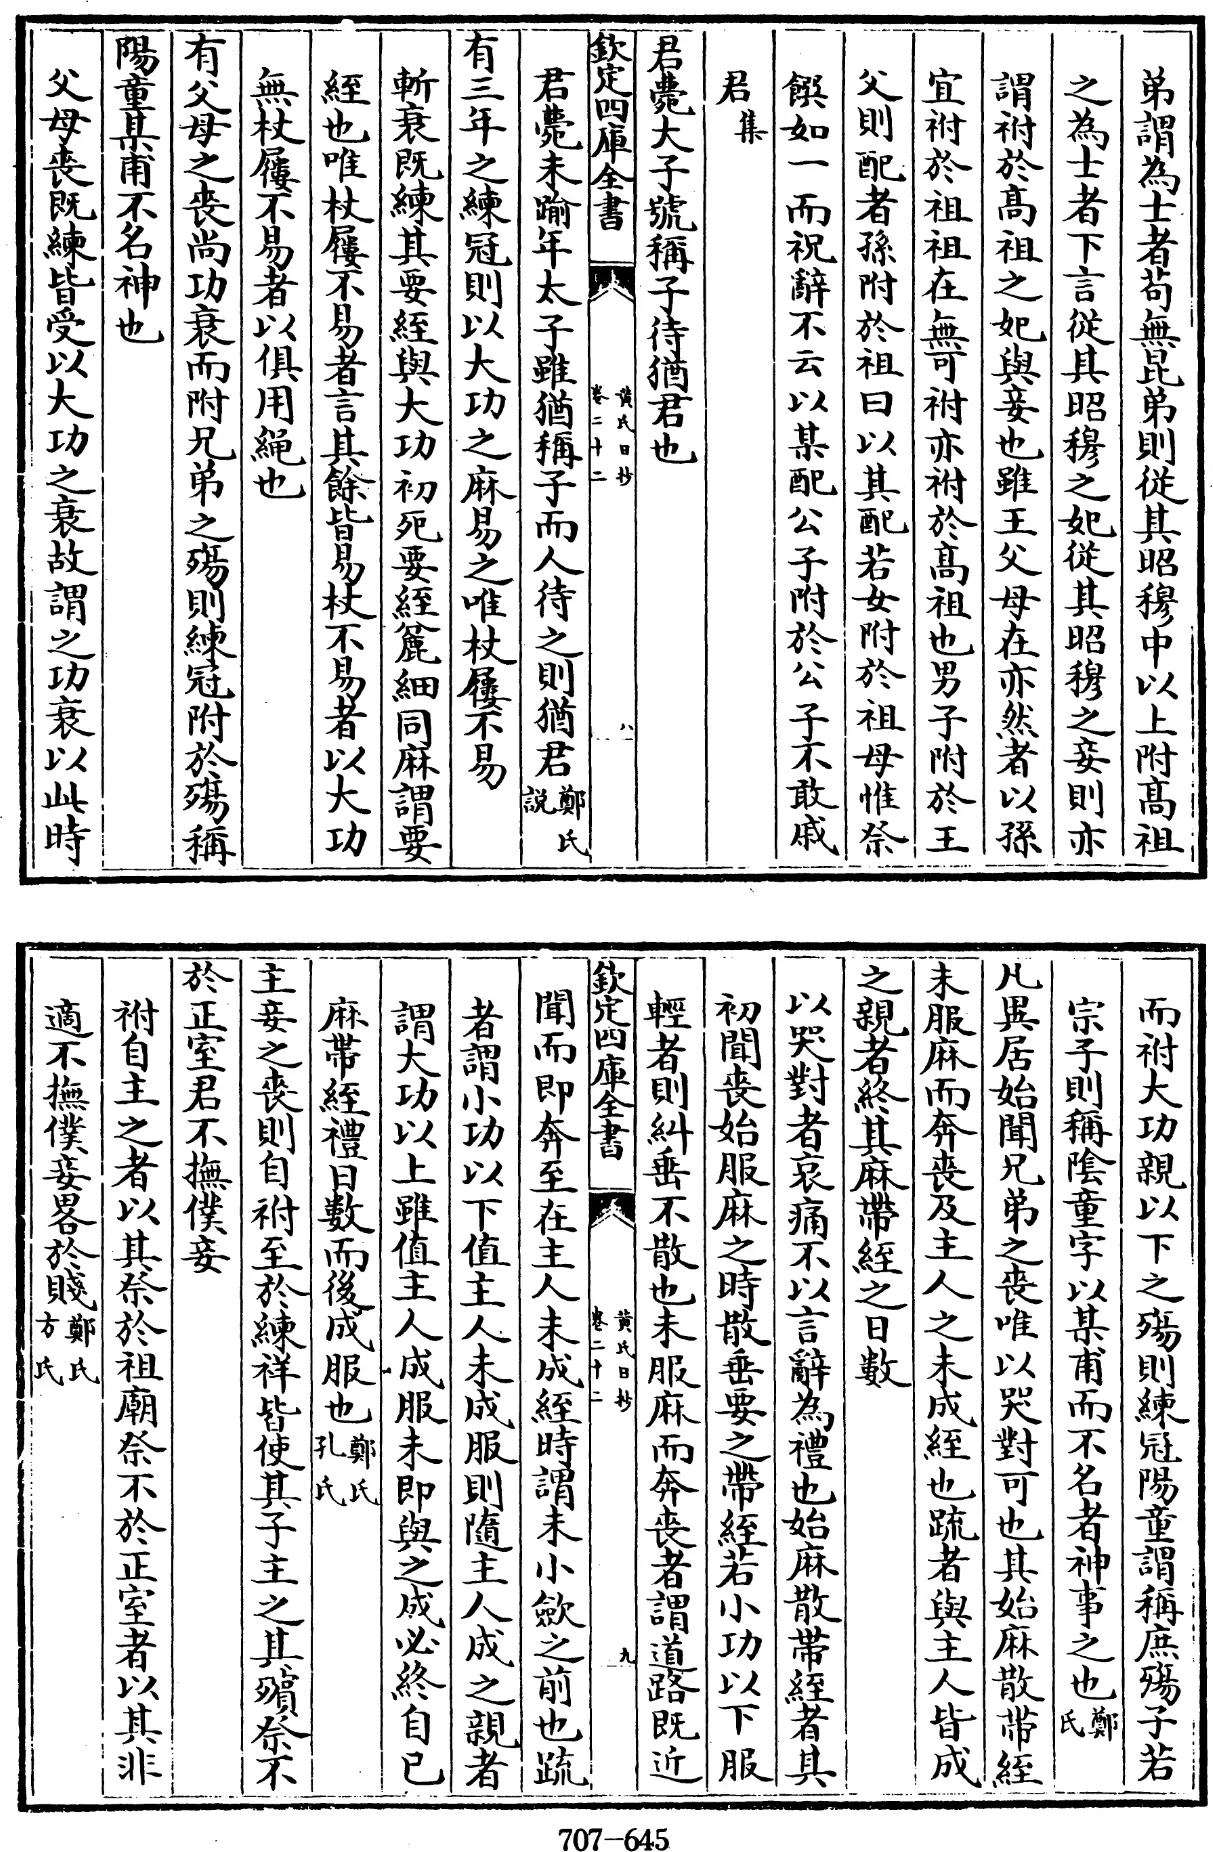 弟謂為士者苟無昆弟則從其昭穆中以上附髙祖
之為士者下言從其昭穆之妃從其昭穆之妾則亦
謂祔於髙祖之妃與妾也雖王父母在亦然者以孫
宜祔於祖祖在無可祔亦祔於髙祖也男子附於王
父則配者孫附於祖曰以其配若女附於祖母惟祭
饌如一而祝辭不云以某配公子附於公子不敢戚
君集
君薨大子號稱子待猶君也
欽定四庫全書 黄氏日抄 卷二十二 八
君薨未踰年太子雖猶稱子而人待之則猶君鄭氏説
有三年之練冠則以大功之麻易之唯杖屨不易
斬衰既練其要絰與大功初死要絰麄細同麻謂要
絰也唯杖屨不易者言其餘皆易杖不易者以大功
無杖屨不易者以俱用繩也
有父母之喪尚功衰而附兄弟之殤則練冠附於殤稱
陽童某甫不名神也
父母喪既練皆受以大功之衰故謂之功衰以此時
而祔大功親以下之殤則練冠陽童謂稱庶殤子若
宗子則稱陰童字以某甫而不名者神事之也鄭氏
凡異居始聞兄弟之喪唯以哭對可也其始麻散帯絰
未服麻而奔喪及主人之未成絰也疏者與主人皆成
之親者終其麻帶絰之日數
以哭對者哀痛不以言辭為禮也始麻散帶絰者其
初聞喪始服麻之時散垂要之帶絰若小功以下服
輕者則糾垂不散也未服麻而奔喪者謂道路既近
欽定四庫全書 黄氏日抄 卷二十二 九
聞而即奔至在主人未成絰時謂未小歛之前也疏
者謂小功以下值主人未成服則隨主人成之親者
謂大功以上雖值主人成服未即與之成必終自已
麻帶絰禮日數而後成服也鄭氏孔氏
主妾之喪則自祔至於練祥皆使其子主之其殯祭不
於正室君不撫僕妾
祔自主之者以其祭於祖廟祭不於正室者以其非
適不撫僕妾畧於賤鄭氏方氏
707-645